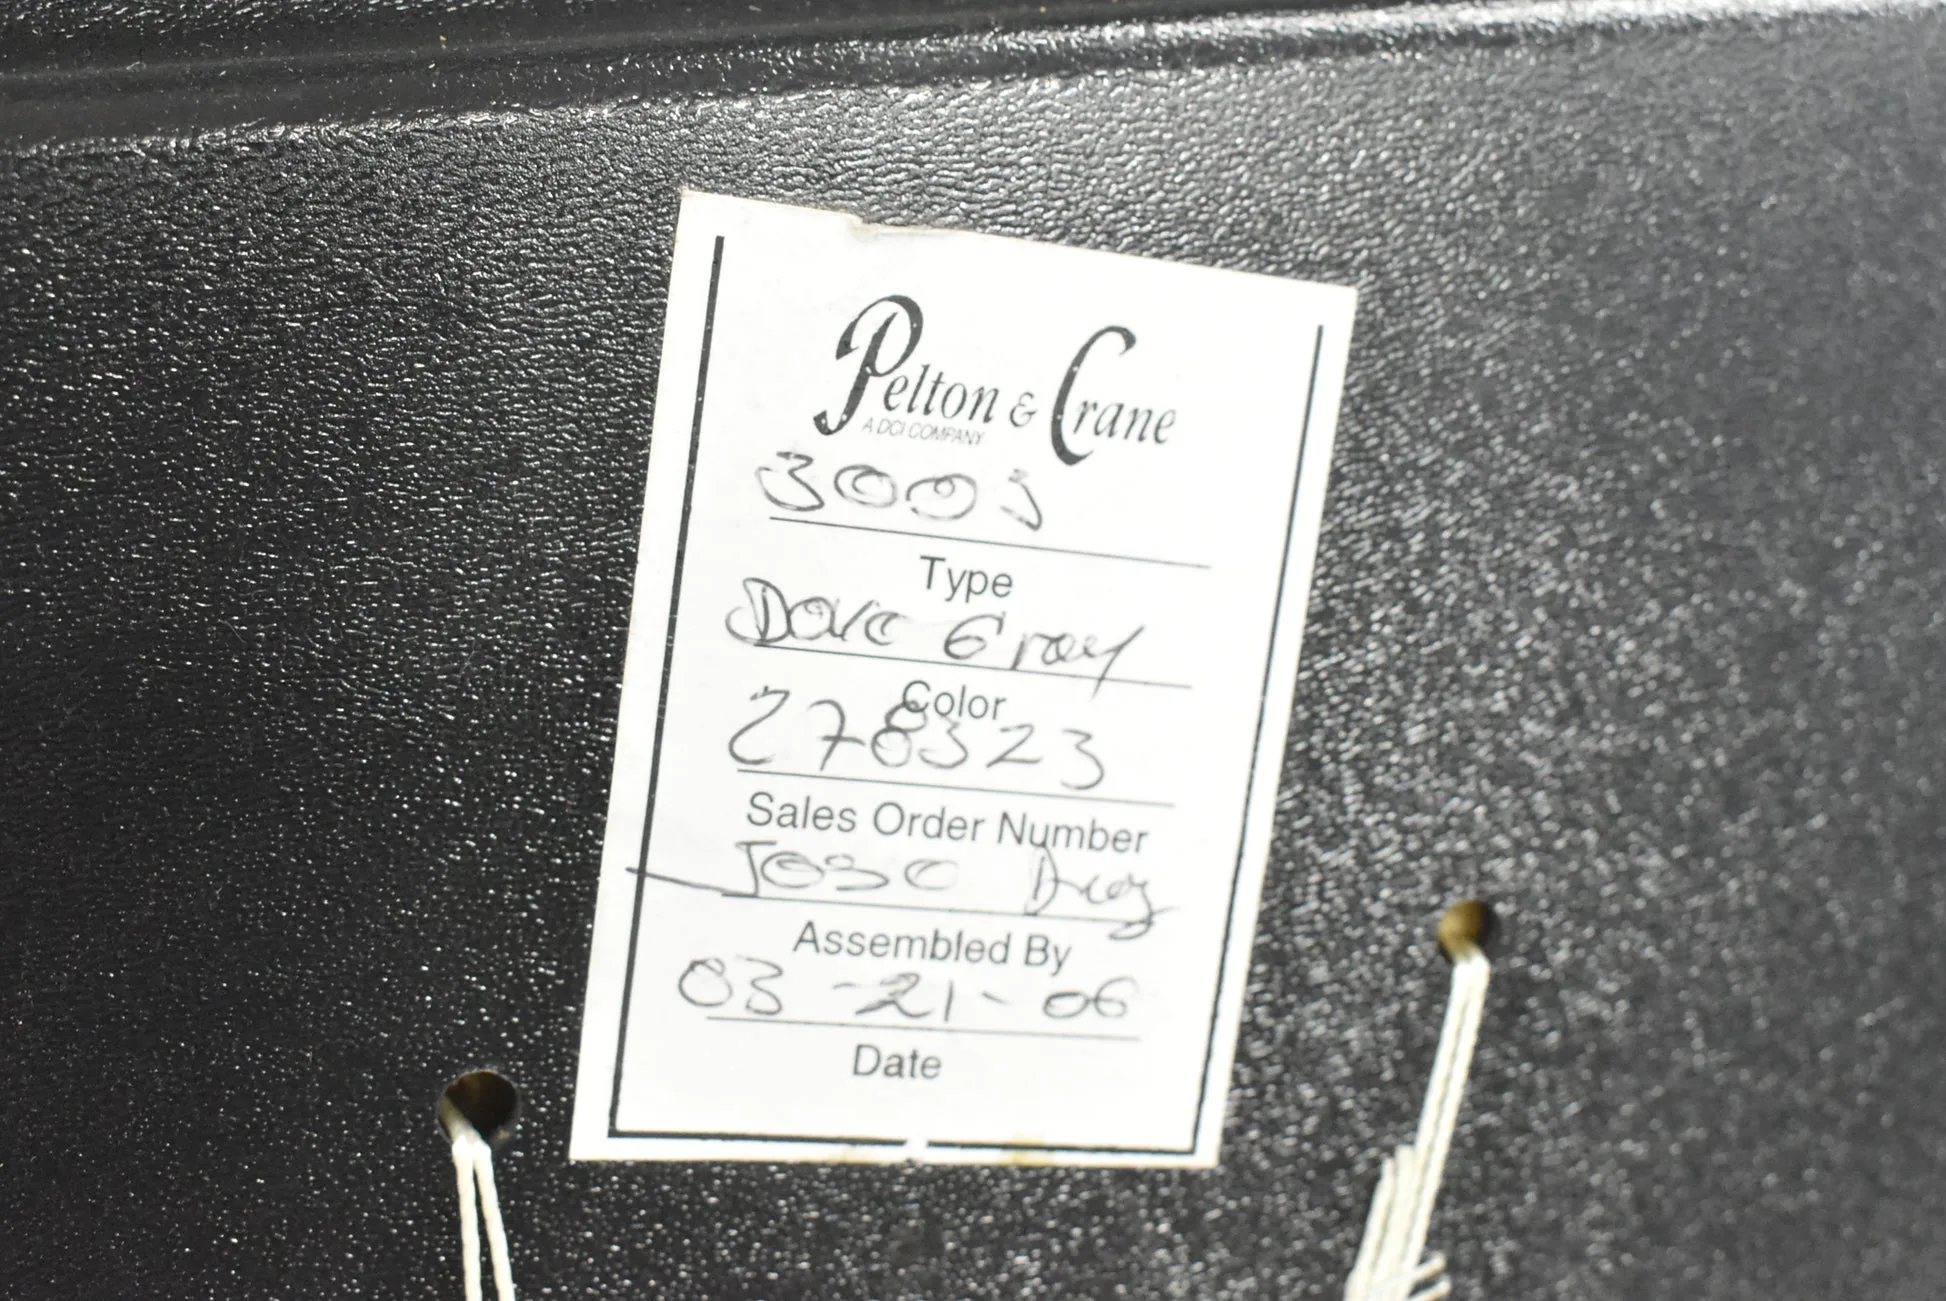 Pelton & Crane
A DCI COMPANY
3003
Type
Dove Gray
Color
278323
Sales Order Number
Jose
Assembled By
03-21-06
Date